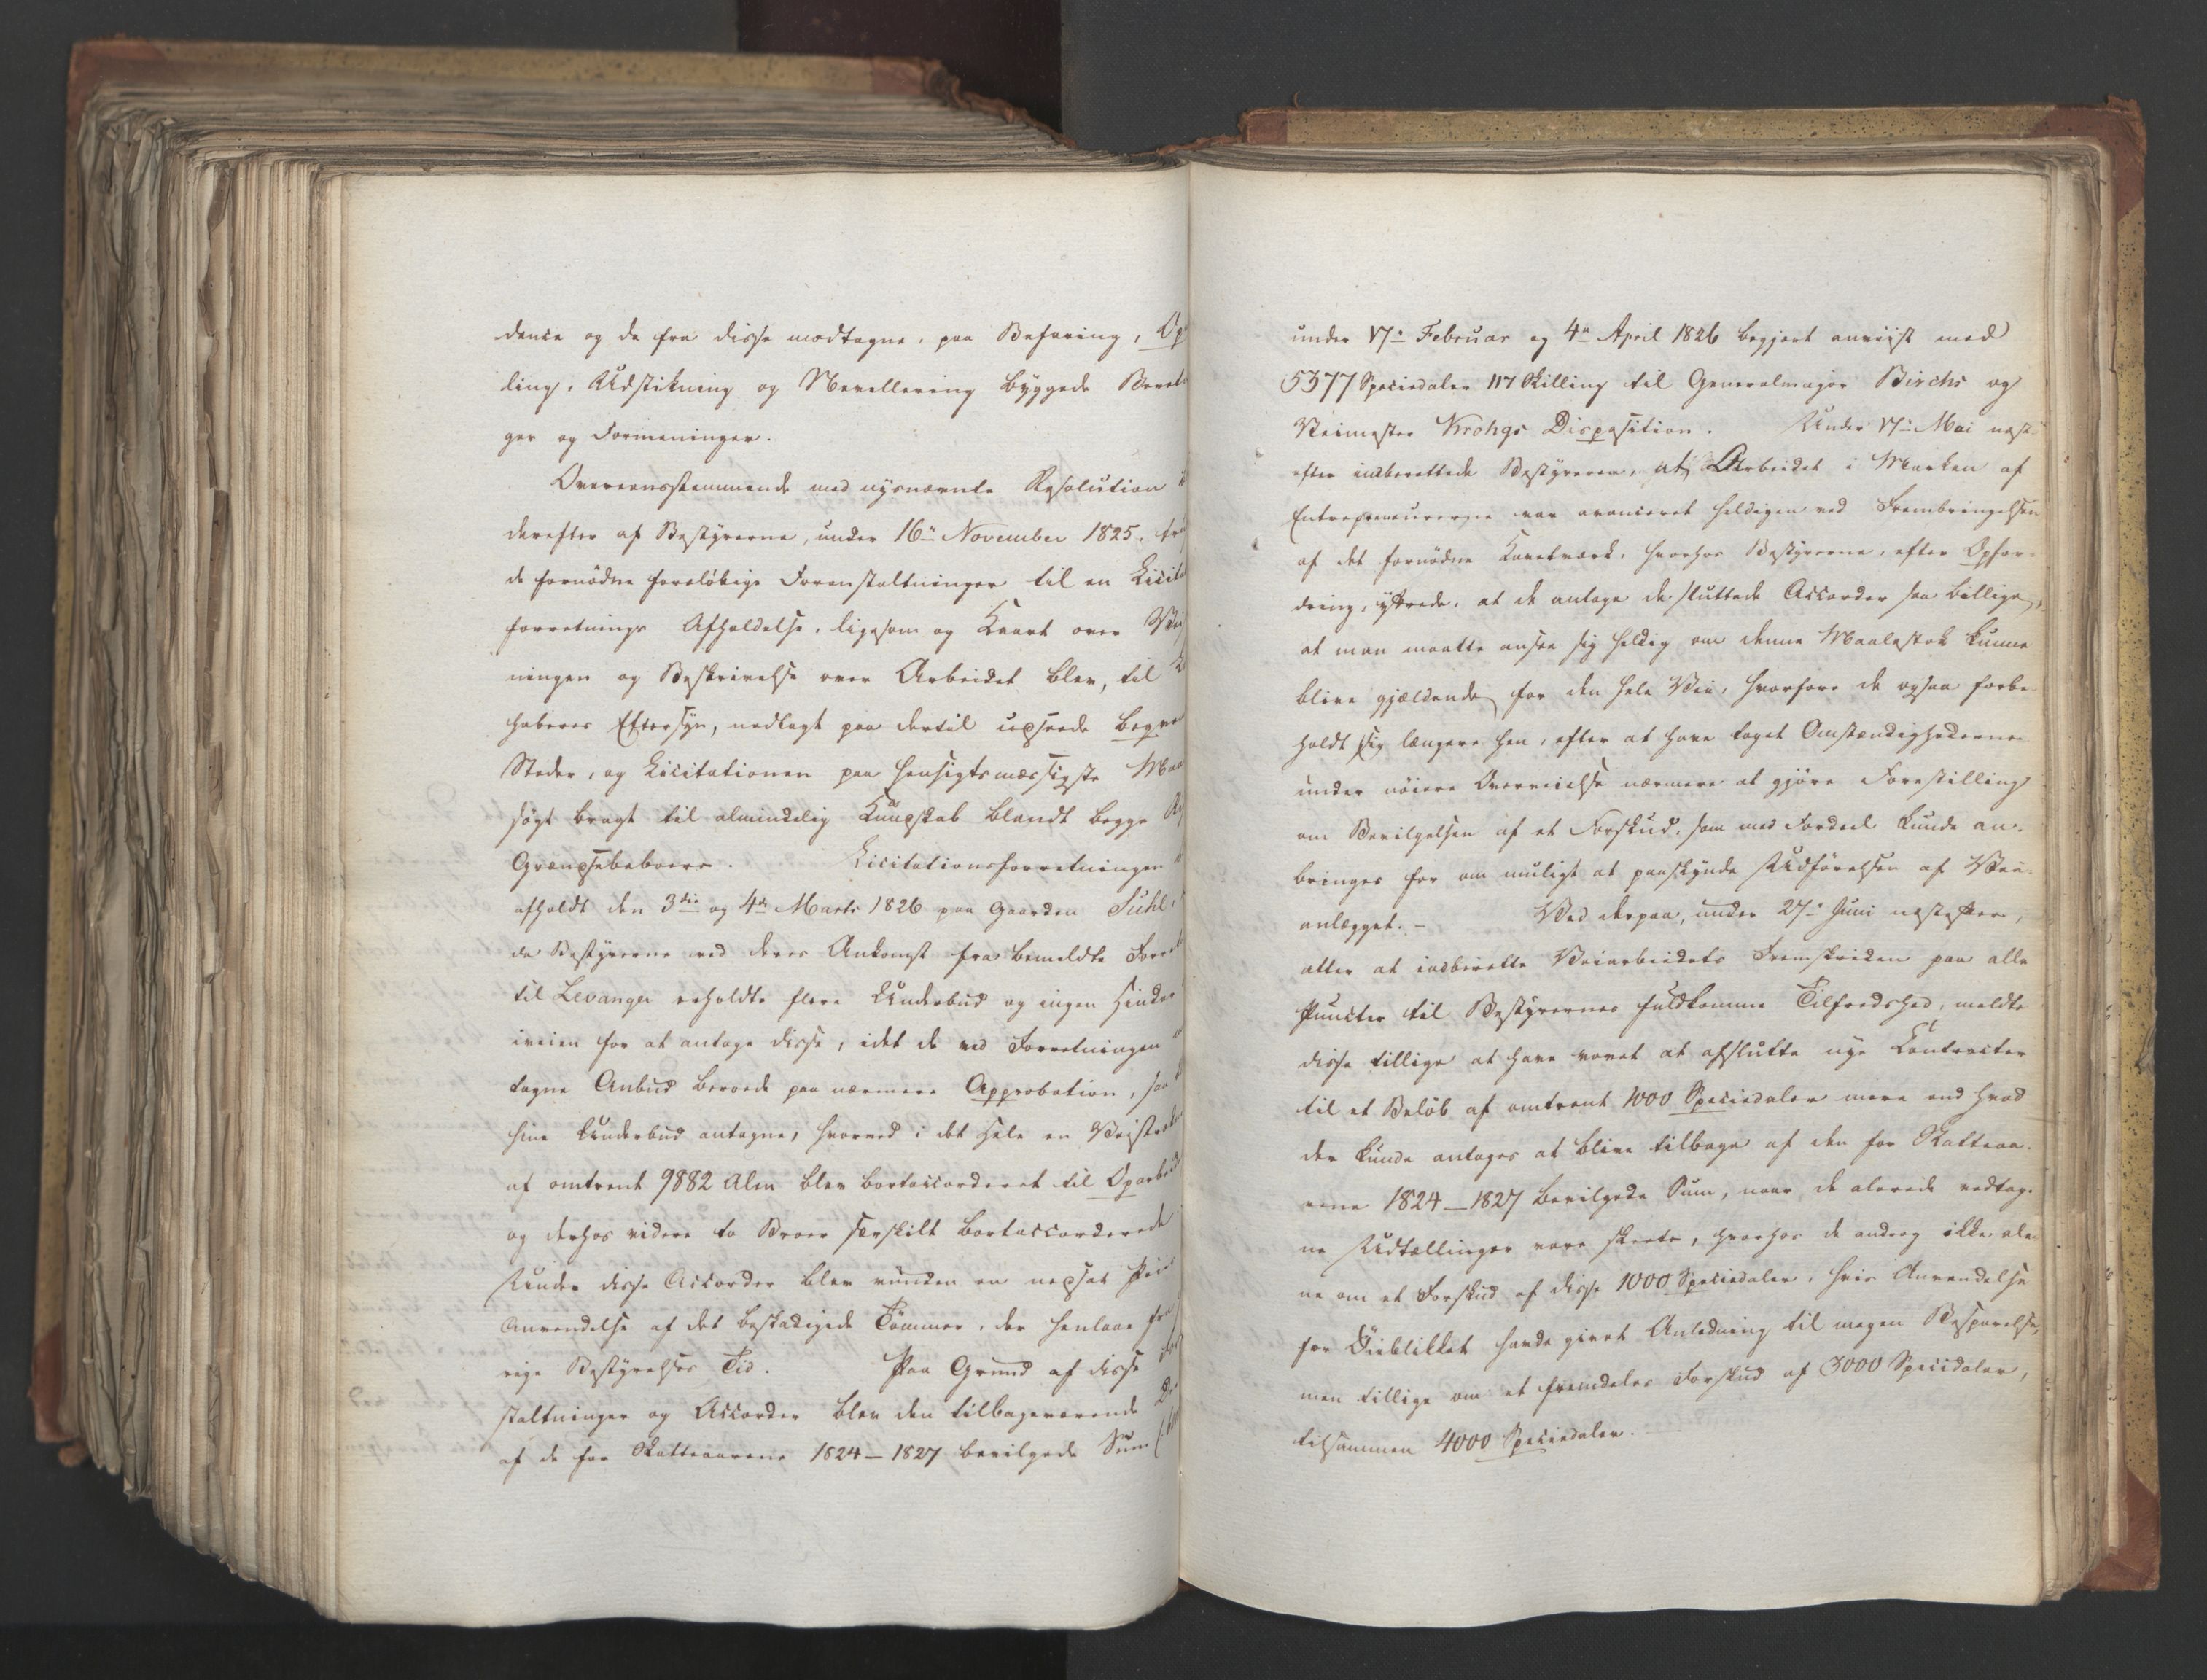 dence og de fra disse modtagne, paa Befaring, Op
ling, Udstikning og Nevellering byggede Beret
ger og Formeninger.
Overeensstemmende med nysnævnte Resolution
derefter af Bestyrerne, under 16de November 1825,
de fornødne foreløbige Foranstaltninger til en Licita
forretnings Afholdelse, ligesom og Kaart over Vei
ningen og Beskrivelse over Arbeidet blev, til
haveres Eftersyn, nedlagt paa dertil udseede beqve
Steder, og Licitationen paa hensigtsmæssigste Maa
søgt bragt til almindelig Kundskab blandt begge
Grændsebeboere. Licitationsforretningen
afholdt den 3die og 4de Marts 1826 paa Gaarden Suhl,
da Bestyrerne ved deres Ankomst fra bemeldte Forret
til Levanger erholdte flere Underbud og ingen Hinder
iveien for at antage disse, idet de ved Forretningen
tagne Anbud beroede paa nærmere Approbation, saa
hine Underbud antagne, hvorved i det Hele en Veistræk
af omtrent 9882 Alen blev bortaccorderet til Oparbeid
og derhos videre to Broer særskilt bortaccorderede.
Under disse Accorder blev vunden en nedsat Priis
Anvendelse af det beskadigede Tømmer, der henlaae fra
rige Bestyrelses Tid. Paa Grund af disse
staltninger og Accorder blev den tilbageværende
af de for Skatteaarene 1824–1827 bevilgede Sum
under 17de Februar og 4de April 1826 begjert anviist med
5377 Speciedaler 117 Skilling til Generalmajor Birchs og
Veimester Krohgs Disposition. Under 17de Mai næst
efter indberettede Bestyrerne, at Arbeidet i Marken af
Entrepreneurerne var avanceret heldigen ved Frembringelsen
af det fornødne Kavelværk, hvorhos Bestyrerne, efter Opfor-
dring, yttrede, at de antoge de sluttede Accorder saa billige,
at man maatte ansee sig heldig om denne Maalestok kunne
blive gjældende for den hele Vei, hvorfore de ogsaa forbe-
holdt sig længere hen, efter at have taget Omstændighederne
under nøiere Overveielse nærmere at gjøre Forestilling
om Bevilgelsen af et Forskud, som med Fordeel kunde an-
bringes for om muligt at paaskynde Udførelsen af Vei-
anlægget. – Ved derpaa, under 27de Juni næstefter,
atter at indberette Veiarbeidets Fremskriden paa alle
Puncter til Bestyrernes fuldkomne Tilfredshed, meldte
disse tillige at have vovet at afslutte nye Contracter
til et Beløb af omtrent 1000 Speciedaler mere end hvad
der kunde antages at blive tilbage af den for Skatteaa-
rene 1824–1827 bevilgede Sum, naar de alerede vedtag-
ne Udtællinger vare skeete, hvorhos de androg ikke ale-
ne om et Forskud af disse 1000 Speciedaler, hvis Anvendelse
for Øieblikket havde givet Anledning til megen Besparelse,
men tillige om et fremdeles Forskud af 3000 Speciedaler,
tilsammen 4000 Speciedaler.